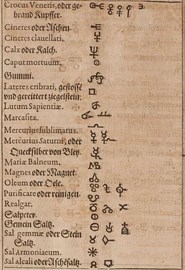 Crocus Veneris, oder ge-
brand Kupffer.
Cineres oder Aschen.
Cineres clauellati.
Calx oder Kalch.
Caput mortuum.
Gummi.
Lateres cribrati, gestosse
vnd gereittert ziegelstein.
Lutum Sapientiæ.
Marcasita.
Mercurius sublimatus.
Mercurius Saturni, oder
Quecksilber von Bley.
Mariæ Balneum.
Magnes oder Magnet.
Oleum oder Oele.
Purificare oder reinigen.
Realgar.
Salpeter.
Gemein Saltz.
Sal gemmæ oder Stein
Saltz.
Sal Armoniacum.
Sal alcali oder Aschesaltz.